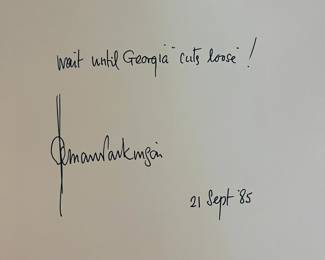 wait until Georgia "cuts loose"!
Norman Parkinson
21 Sept '85